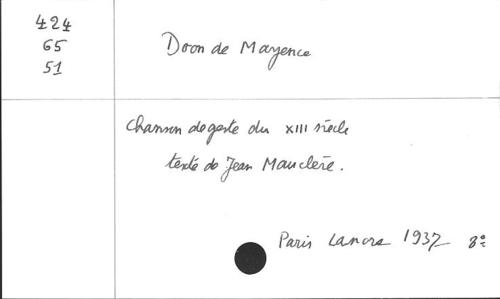 424
65
51
Doon de Mayence
Chanson de geste du XIII siècle
texte de Jean Mauclère.
Paris Lanore 1937 8°